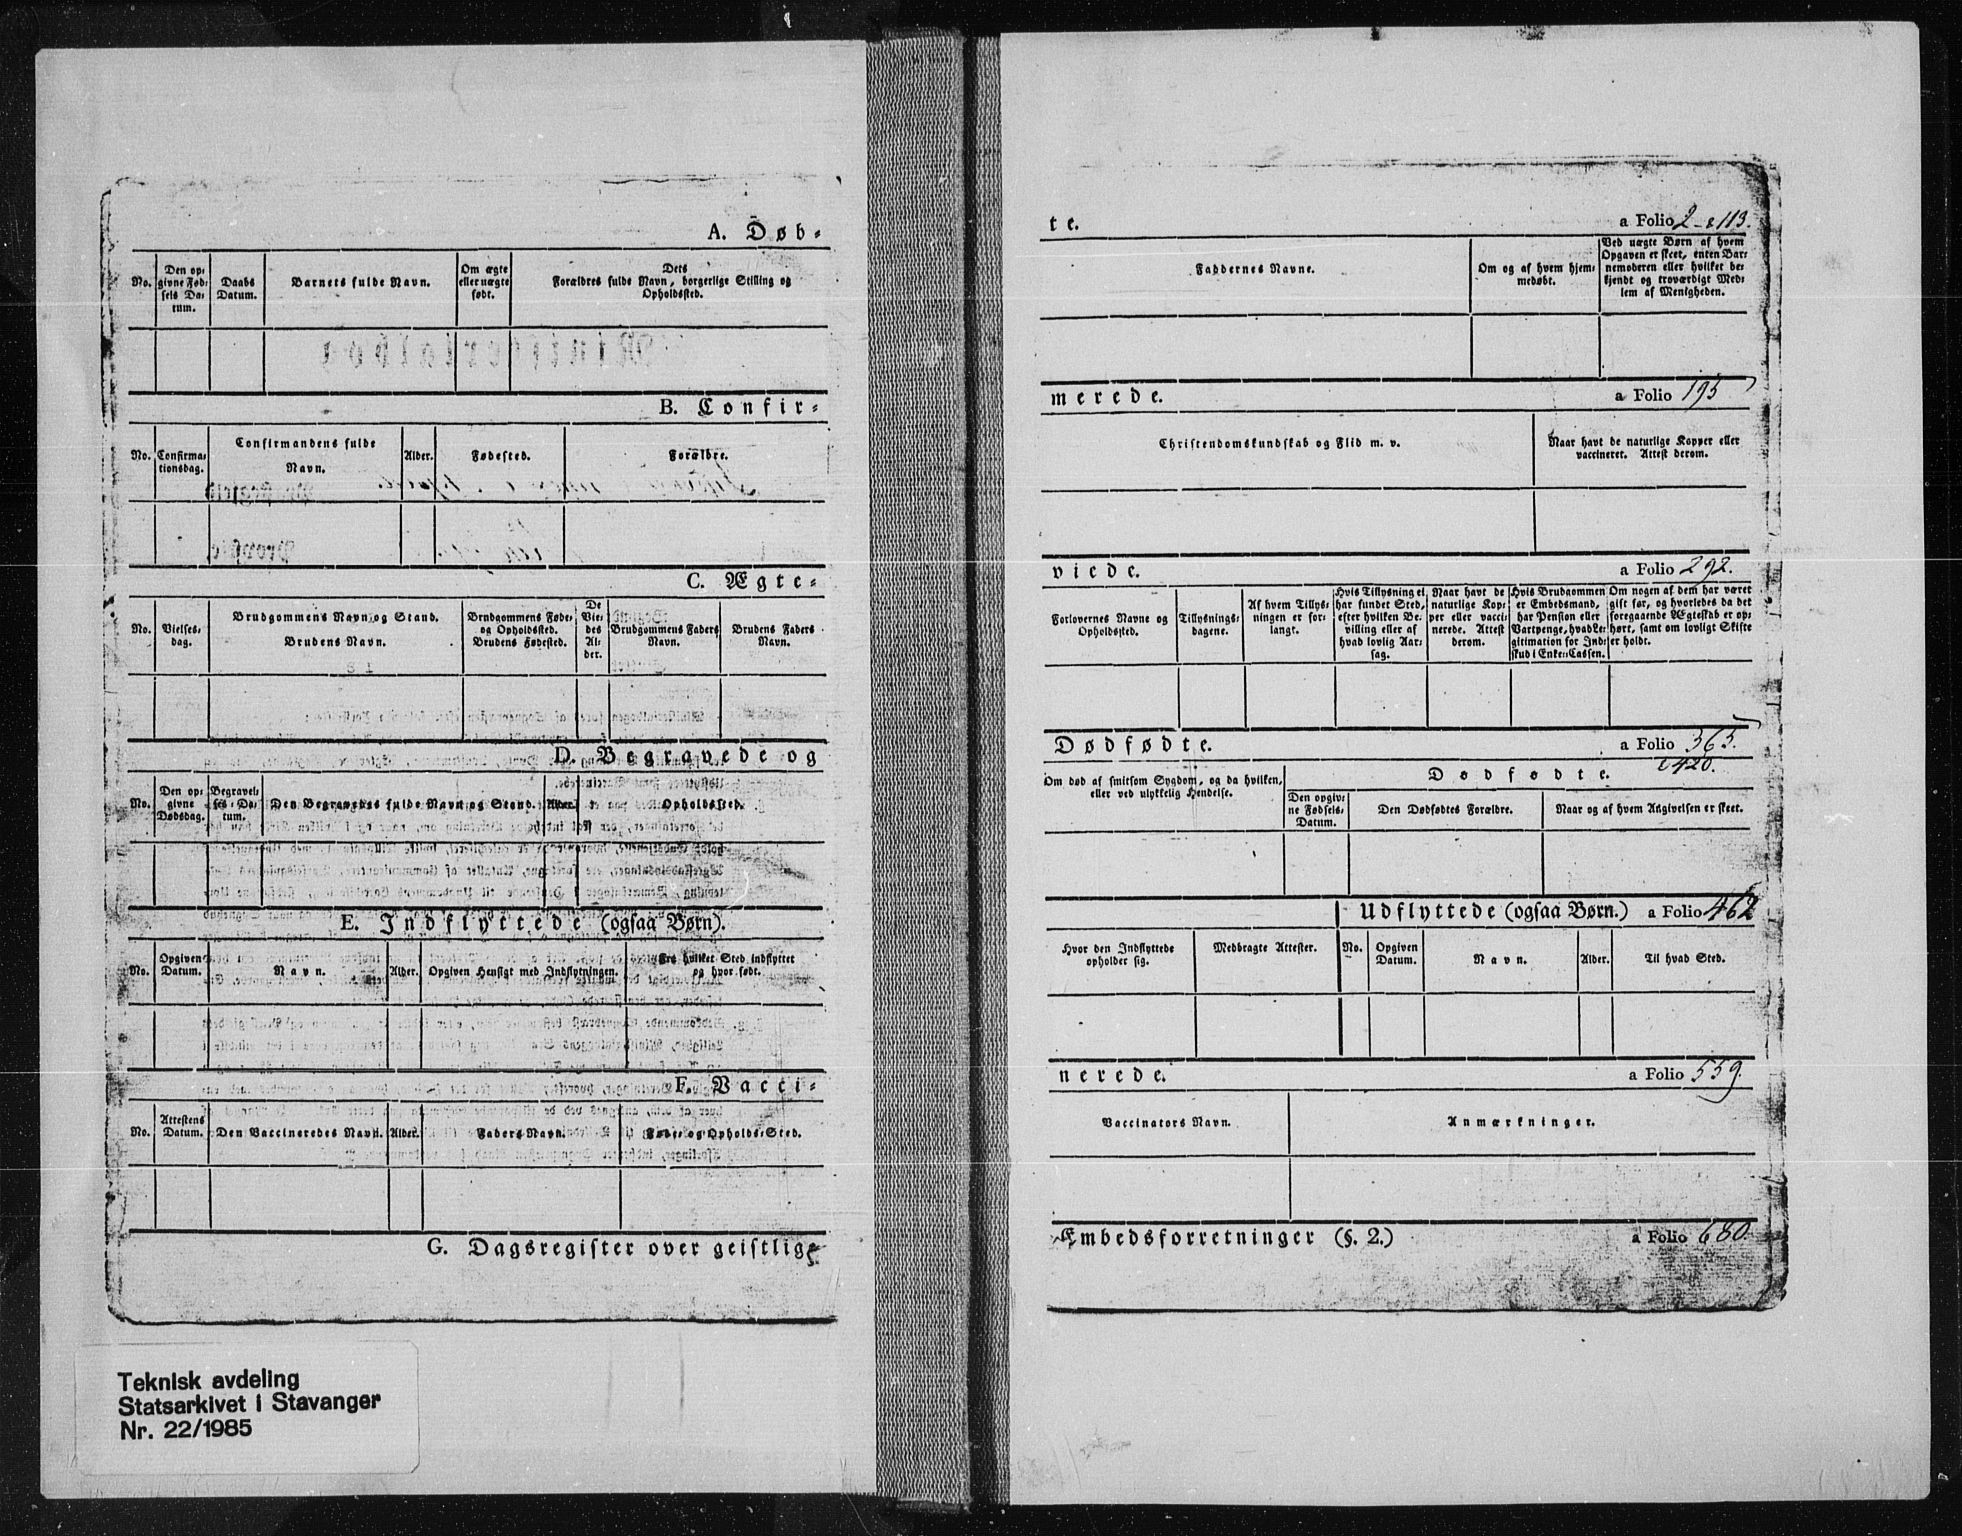 A. Døb-
No.
Den op-
givne Fød-
sels Da-
tum.
Daabs
Datum.
Barnets fulde Navn.
Om ægte
eller uægte
født.
Dets
Forældres fulde Navn, borgerlige Stilling og
Opholdssted.
B. Confir-
No.
Confirma-
tionsdag.
Confirmandens fulde
Navn.
Alder.
Fødested.
Forældre.
C. Ægte-
No.
Vielses-
dag.
Brudgommens Navn og Stand.
Brudens Navn.
Brudgommens Føde-
og Opholdssted.
Brudens Fødested.
De
Vie-
des
Al-
der.
Brudgommens Faders
Navn.
Brudens Faders
Navn.
D. Begravede og
No.
Den op-
givne
Dødsdag.
Begravel-
ses-Da-
tum.
Den Begravedes fulde Navn og Stand.
Alder.
Opholdssted.
E. Indflyttede (ogsaa Børn).
No.
Opgiven
Datum.
Navn.
Alder.
Opgiven Hensigt med Indflytningen.
Fra hvilket Sted indflyttet
og hvor født.
F. Vacci-
No.
Attestens
Datum.
Den Vaccineredes Navn.
Alder.
Faders Navn.
Føde- og Opholds-Sted.
G. Dagsregister over geistlige
Teknisk avdeling
Statsarkivet i Stavanger
Nr. 22/1985
te.
a Folio 2 - 113.
Faddernes Navne.
Om og af hvem hjem-
medøbt.
Ved uægte Børn af hvem
Opgaven er skeet, enten Bar-
nemoderen eller hvilket be-
kjendt og troværdigt Med-
lem af Menigheden.
merede.
a Folio 195
Christendomskundskab og Flid m. v.
Naar havt de naturlige Kopper eller
vaccineret. Attest derom.
viede.
a Folio 292.
Forlovernes Navne og
Opholdssted.
Tillysnings-
dagene.
Af hvem Tillys-
ningen er for-
langt.
Hvis Tillysning ei
har fundet Sted,
efter hvilken Be-
villing eller af
hvad lovlig Aar-
sag.
Naar havt de
naturlige Kop-
per eller vacci-
nerede. Attest
derom.
Hvis Brudgommen
er Embedsmand,
har Pension eller
Vartpenge, hvad Le-
gitimation for Ind-
skud i Enke-Cassen.
Om nogen af dem har været
gift før, og hvorledes da det
foregaaende Ægteskab er op-
hørt, samt om lovligt Skifte
er holdt.
Dødfødte.
a Folio 365.
420.
Om død af smitsom Sygdom, og da hvilken,
eller ved ulykkelig Hendelse.
Dødfødte.
Den opgiv-
ne Fødsels-
Datum.
Den Dødfødtes Forældre.
Naar og af hvem Angivelsen er skeet.
Udflyttede (ogsaa Børn.) a Folio 462
Hvor den Indflyttede
opholder sig.
Medbragte Attester.
No.
Opgiven
Datum.
Navn.
Alder.
Til hvad Sted.
nerede.
a Folio 559.
Vaccinators Navn.
Anmærkninger.
Embedsforretninger (§. 2.)
a Folio 680.